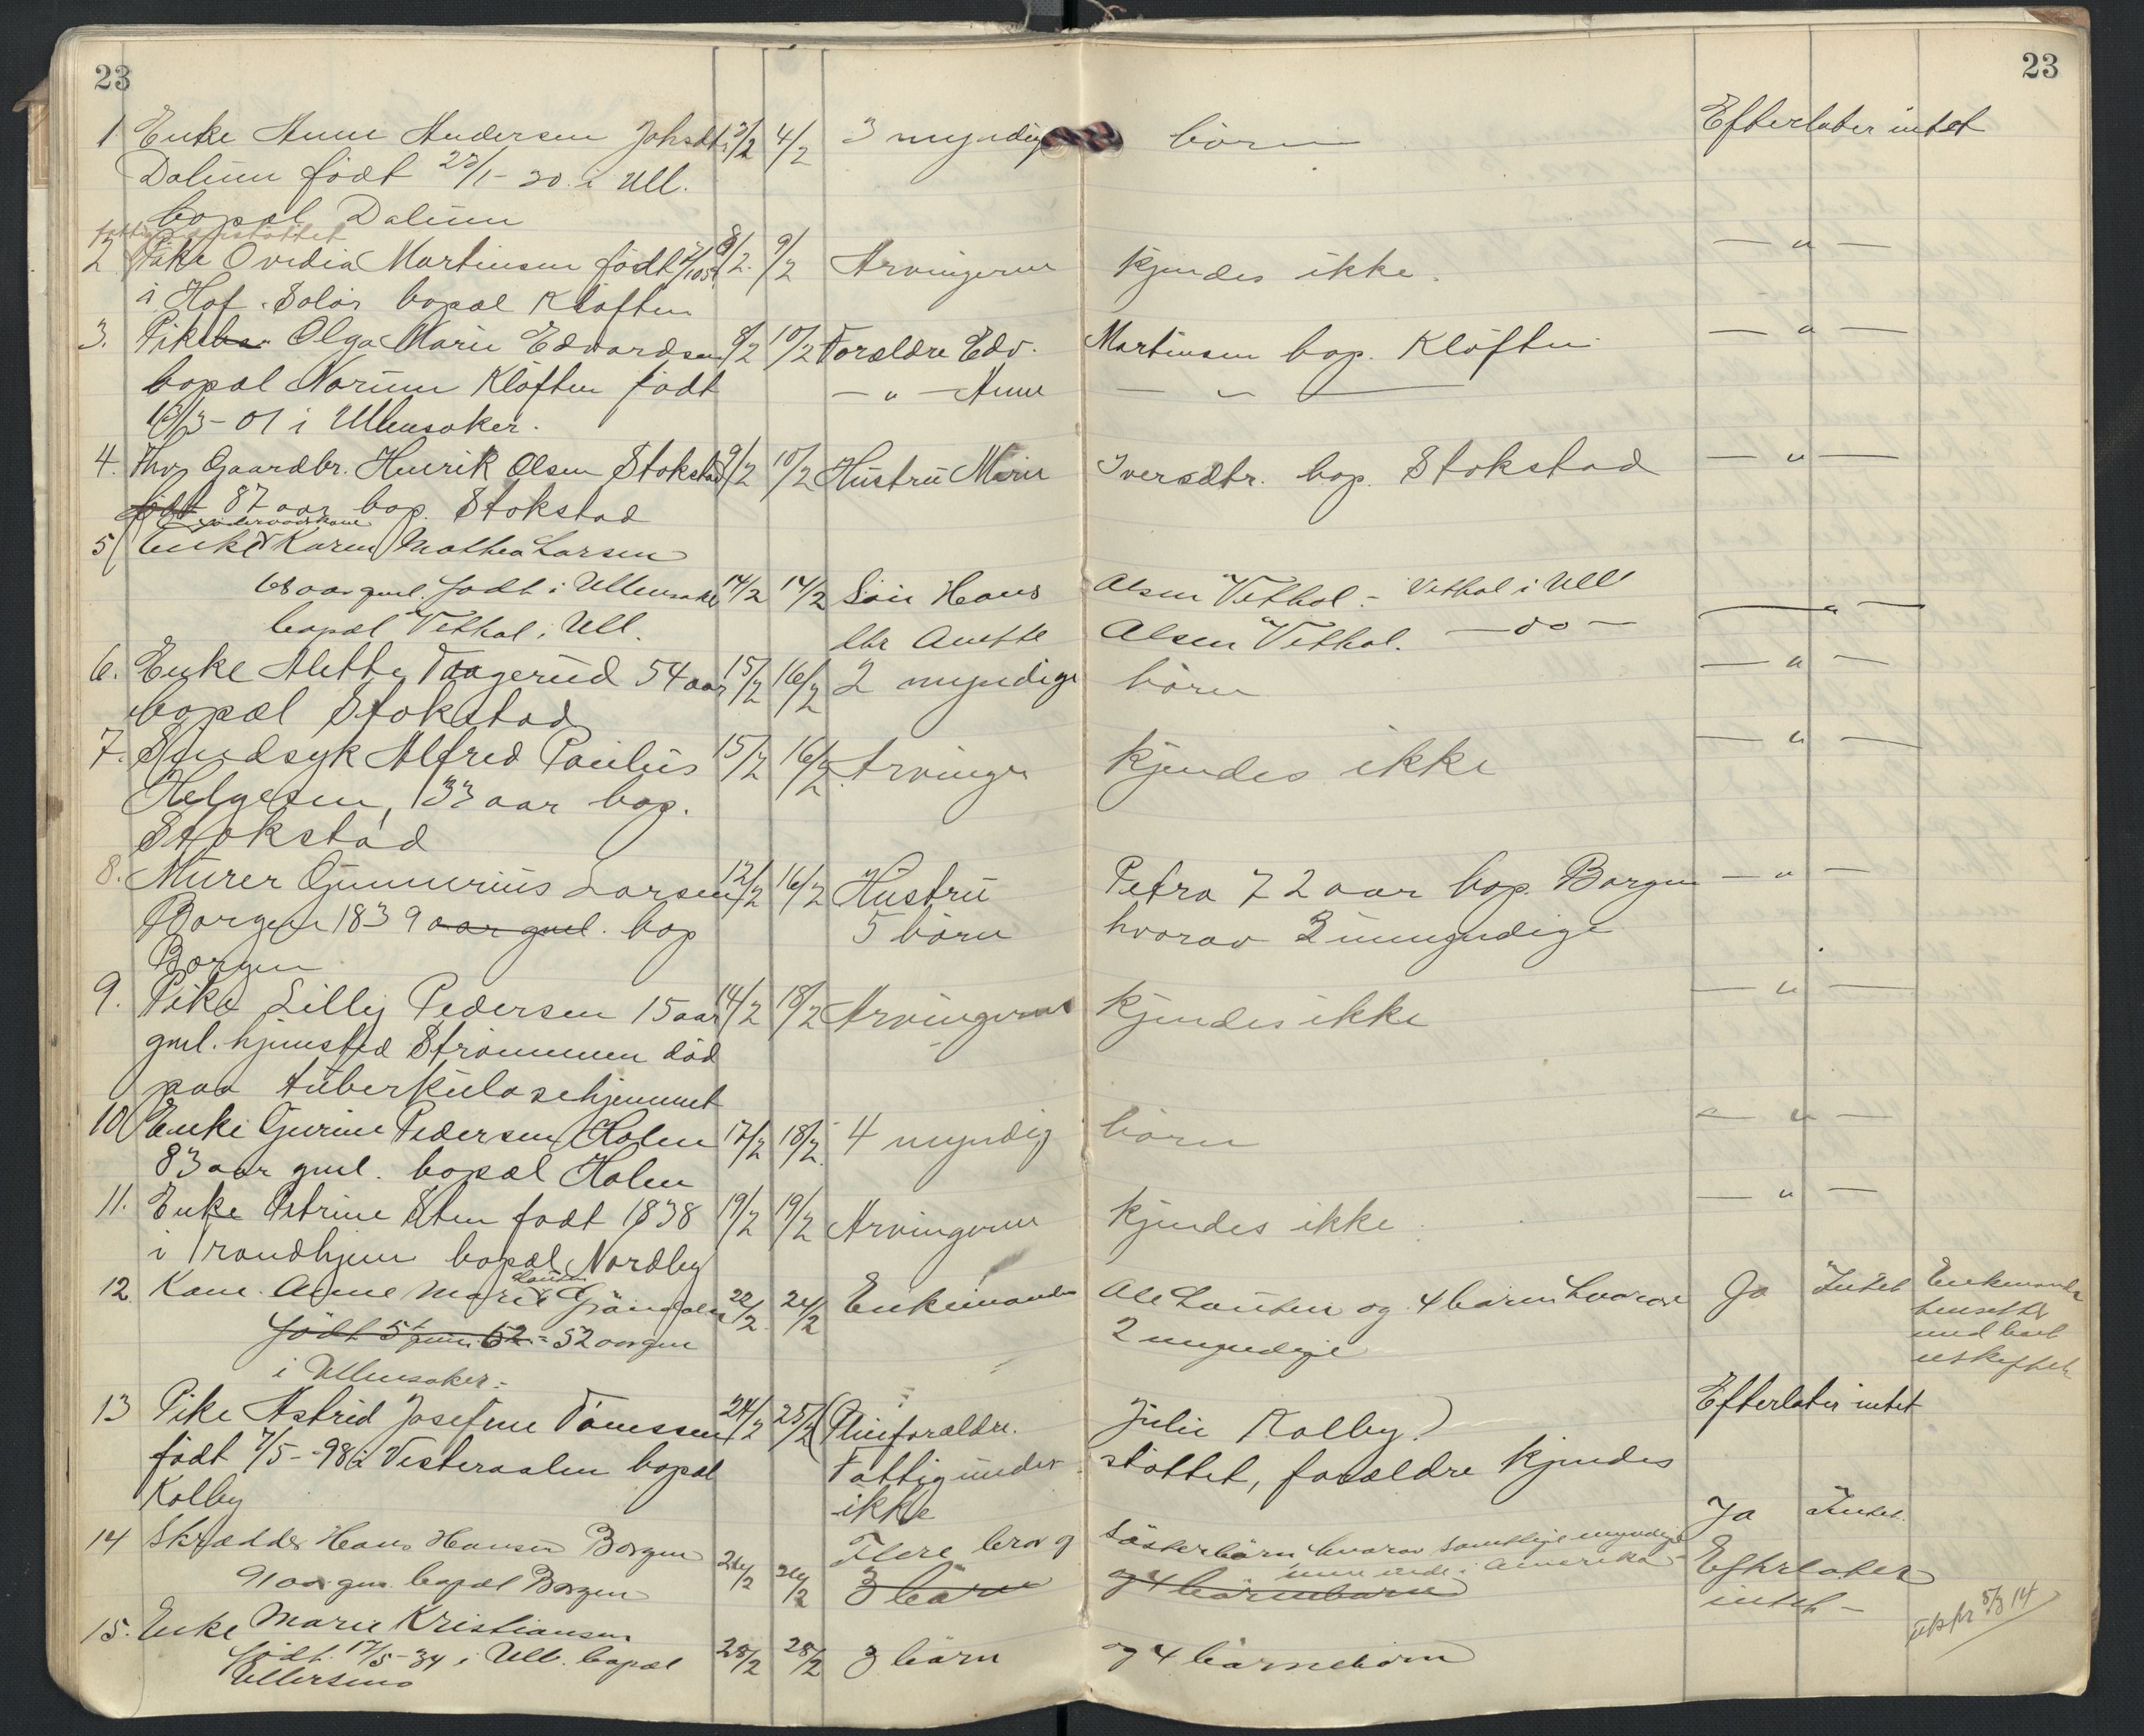 23
23
1. Enke Anne Andersen Johsdt. 3/2 4/2 3 myndige børn Efterlater intet
Dalum født 23/1-30 i Ull.
bopæl Dalum
2 Pike Ovedia Martinsen født 8/2 9/2 Arvingerne kjendes ikke. — " —
i Hof. Solør bopæl Kløften
3. Pike Olga Marie Edvardsen 8/2 10/2 Forældre Edv. Martinsen bop. Kløften — " —
bopæl Norum Kløften født — " — Anne — " —
13/3-01 i Ullensaker.
4. Fhv. Gaardbr. Henrik Olsen Stokstad 9/2 10/2 Hustru Marie Iversdtr. bop. Stokstad — " —
født 87 aar bop. Stokstad
5 Enke Karen Mathea Larsen
68 aar gml. født i Ullensaker 14/2 14/2 Søn Hans Olsen Vethal - Vethal i Ull — " —
bopæl Vethal i Ull. dtr Anette Olsen Vethal. — do —
6. Enke Mette Taagerud 54 aar 15/2 16/2 2 myndige børn — " —
bopæl Stokstad
7. Sindsyk Alfred Paulus 15/2 16/2 Arvinger kjendes ikke — " —
Helgesen, 33 aar bop.
Stokstad
8. Murer Gunnerius Larsen 12/2 16/2 Hustru Petra 72 aar bop. Borgen — " —
Borgen 1839 aar gml. bop 5 børn hvorav 2 umyndige
Borgen
9. Pike Lilly Pedersen 15 aar 14/2 18/2 Arvingerne kjendes ikke — " —
gml. hjemsted Strømmen død
paa tuberkulosehjemmet
10 Enke Gurine Pedersen Holen 17/2 18/2 4 myndig børn — " —
83 aar gml. bopæl Holen
11. Enke Petrine Sten født 1838 19/2 19/2 Arvingerne kjendes ikke — " —
i Trondhjem bopæl Nordby
12. Kone Anne Marie 22/2 24/2 Enkemanden Ole Lauten og 4 børn hvorav Ja Intet Enkemand
født 5 juni 62 = 52 aar gm 2 myndige
i Ullensaker =
uskiftet
13 Pike Astrid Josefine Tømessen 24/2 25/2 (Pleieforældre. Julie Kolby) Efterlater intet
født 7/5-98 i Vesteraalen bopæl Fattigunder støttet, forældre kjendes
Kolby ikke
14 Skrædder Hans Hansen Borgen 26/2 26/2 Flere bror og Søsterbørn, hvorav samtlige myndige Ja Intet.
91 aar gm. bopæl Borgen 3 børn og 4 børnebørn i Amerika - Efterlater
intet -
15. Enke Marie Kristiansen
født 17/5-34 i Ull. bopæl 28/2 28/2 3 børn og 4 børnebørn 5/3 14